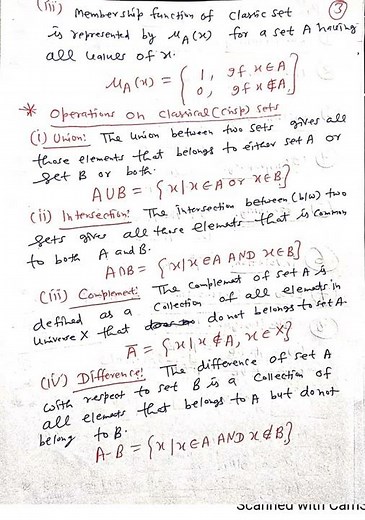 (iii) Membership function of Classic set
③
is represented by μA(x) for a set A having
all values of x.
μA(x) = { 1, If x∈A
0, If x∉A.
* Operations on Classical (Crisp) sets
(i) Union: The Union between two sets gives all
those elements that belongs to either set A or
set B or both.
AUB = {x | x∈A or x∈B}
(ii) Intersection: The intersection between (b/w) two
sets gives all those elements that is common
to both A and B.
A∩B = {x | x∈A AND x∈B}
(iii) Complement: The Complement of set A is
defined as a Collection of all elements in
Universe X that do not belongs to set A.
A̅ = {x | x∉A, x∈X}
(iv) Difference: The difference of set A
with respect to set B is a Collection of
all elements that belongs to A but do not
belong to B.
A-B = {x | x∈A AND x∉B}
Scanned with Cams